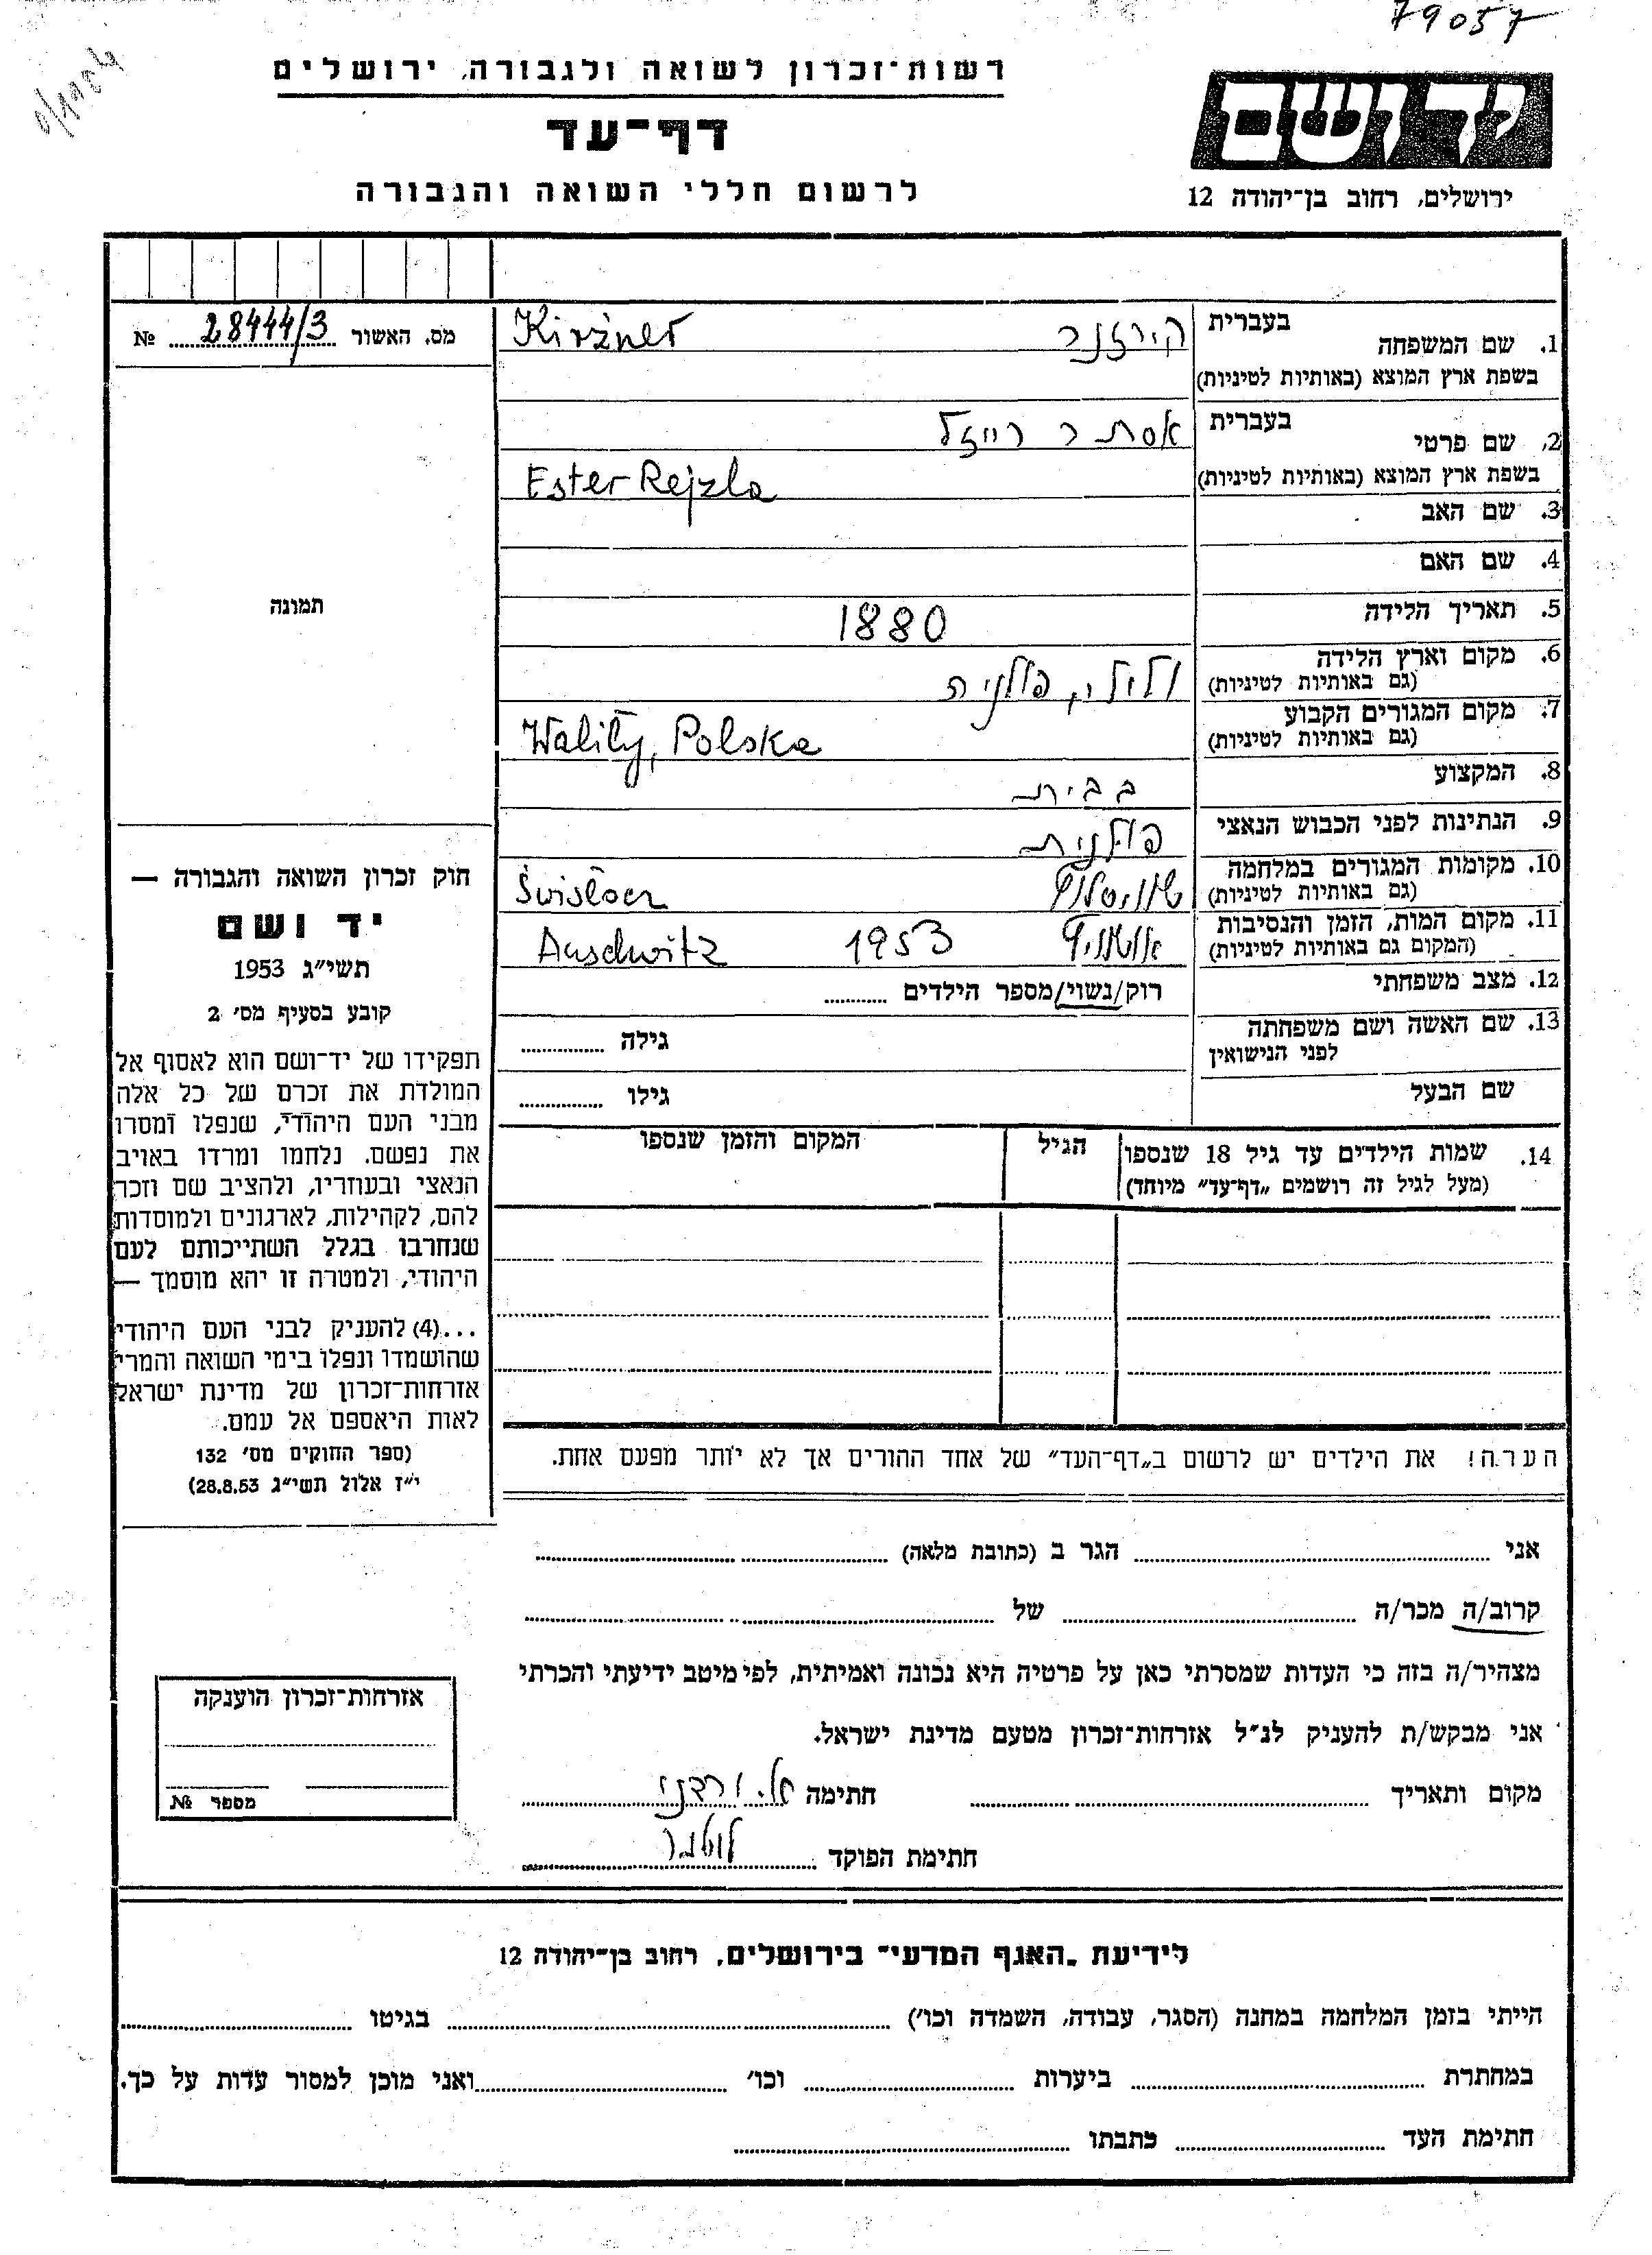 79057
רשות־זכרון לשואה ולגבורה, ירושלים
דף־עד
לרשום חללי השואה והגבורה
יד ושם
ירושלים, רחוב בן־יהודה 12
מס. האשור 28444/3 №
תמונה
חוק זכרון השואה והגבורה —
יד ושם
תשי״ג 1953
קובע בסעיף מס׳ 2
תפקידו של יד־ושם הוא לאסוף אל
המולדת את זכרם של כל אלה
מבני העם היהודי, שנפלו ומסרו
את נפשם. נלחמו ומרדו באויב
הנאצי ובעוזריו, ולהציב שם וזכר
להם, לקהילות, לארגונים ולמוסדות
שנחרבו בגלל השתייכותם לעם
היהודי, ולמטרה זו יהא מוסמך —
...(4) להעניק לבני העם היהודי
שהושמדו ונפלו בימי השואה והמרי
אזרחות־זכרון של מדינת ישראל
לאות היאספם אל עמם.
(ספר החוקים מס׳ 132
י״ז אלול תשי״ג 28.8.53)
1. שם המשפחה בעברית קירזנר Kirżner
בשפת ארץ המוצא (באותיות לטיניות)
2. שם פרטי בעברית אסתר רייזל
בשפת ארץ המוצא (באותיות לטיניות) Ester Rejzla
3. שם האב
4. שם האם
5. תאריך הלידה 1880
6. מקום וארץ הלידה
(גם באותיות לטיניות) ולילי, פולניה
7. מקום המגורים הקבוע
(גם באותיות לטיניות) Waliły, Polska
8. המקצוע בבית
9. הנתינות לפני הכבוש הנאצי פולנית
10. מקומות המגורים במלחמה
(גם באותיות לטיניות) Świsłocz
11. מקום המות, הזמן והנסיבות
(המקום גם באותיות לטיניות) אושוויץ 1953 Auschwitz
12. מצב משפחתי רוק/נשוי/מספר הילדים
13. שם האשה ושם משפחתה
לפני הנישואין גילה
שם הבעל גילו
14. שמות הילדים עד גיל 18 שנספו
(מעל לגיל זה רושמים „דף־עד״ מיוחד) הגיל המקום והזמן שנספו
הערה! את הילדים יש לרשום ב„דף־העד״ של אחד ההורים אך לא יותר מפעם אחת.
אני הגר ב (כתובת מלאה)
קרוב/ה מכר/ה של
מצהיר/ה בזה כי העדות שמסרתי כאן על פרטיה היא נכונה ואמיתית, לפי מיטב ידיעתי והכרתי
אני מבקש/ת להעניק לנ״ל אזרחות־זכרון מטעם מדינת ישראל.
מקום ותאריך חתימה
חתימת הפוקד
אזרחות־זכרון הוענקה
מספר №
לידיעת „האגף המדעי״ בירושלים, רחוב בן־יהודה 12
הייתי בזמן המלחמה במחנה (הסגר, עבודה, השמדה וכו׳) בגיטו
במחתרת ביערות וכו׳ ואני מוכן למסור עדות על כך.
חתימת העד כתבתו